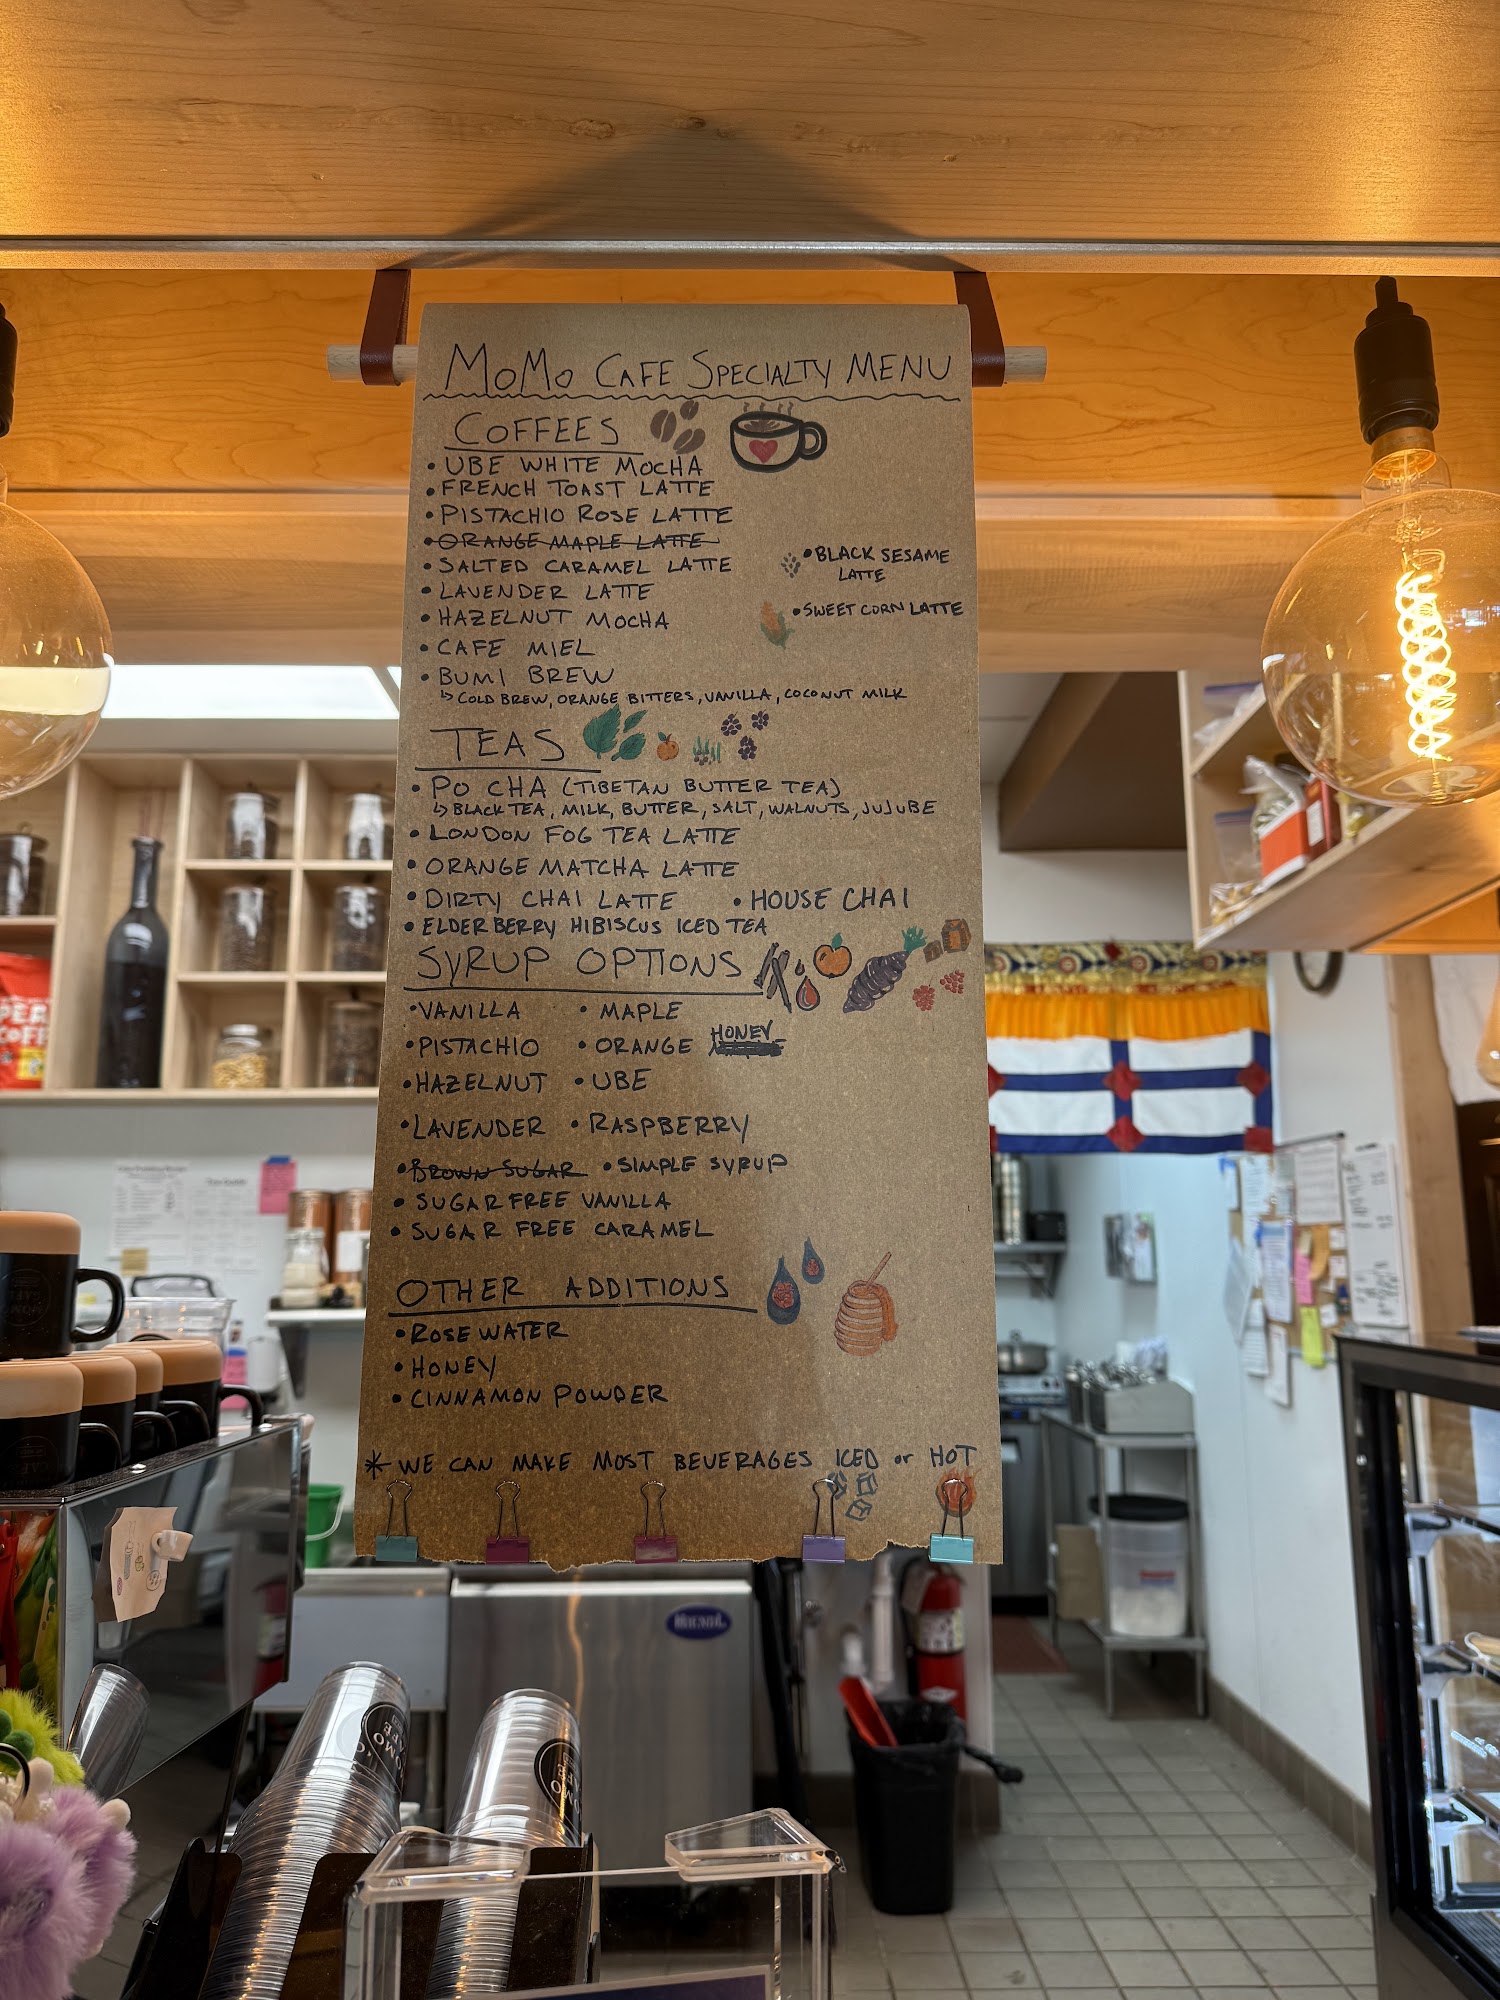 MoMo CAFE SPECIALTY MENU
COFFEES
• UBE WHITE MOCHA
• FRENCH TOAST LATTE
• PISTACHIO ROSE LATTE
• ORANGE MAPLE LATTE
• SALTED CARAMEL LATTE
• LAVENDER LATTE
• HAZELNUT MOCHA
• CAFE MIEL
• BUMI BREW
↳ COLD BREW, ORANGE BITTERS, VANILLA, COCONUT MILK
• BLACK SESAME
LATTE
• SWEET CORN LATTE
TEAS
• PO CHA (TIBETAN BUTTER TEA)
↳ BLACK TEA, MILK, BUTTER, SALT, WALNUTS, JUJUBE
• LONDON FOG TEA LATTE
• ORANGE MATCHA LATTE
• DIRTY CHAI LATTE • HOUSE CHAI
• ELDERBERRY HIBISCUS ICED TEA
SYRUP OPTIONS
• VANILLA • MAPLE
• PISTACHIO • ORANGE HONEY
• HAZELNUT • UBE
• LAVENDER • RASPBERRY
• BROWN SUGAR • SIMPLE SYRUP
• SUGAR FREE VANILLA
• SUGAR FREE CARAMEL
OTHER ADDITIONS
• ROSE WATER
• HONEY
• CINNAMON POWDER
* WE CAN MAKE MOST BEVERAGES ICED or HOT